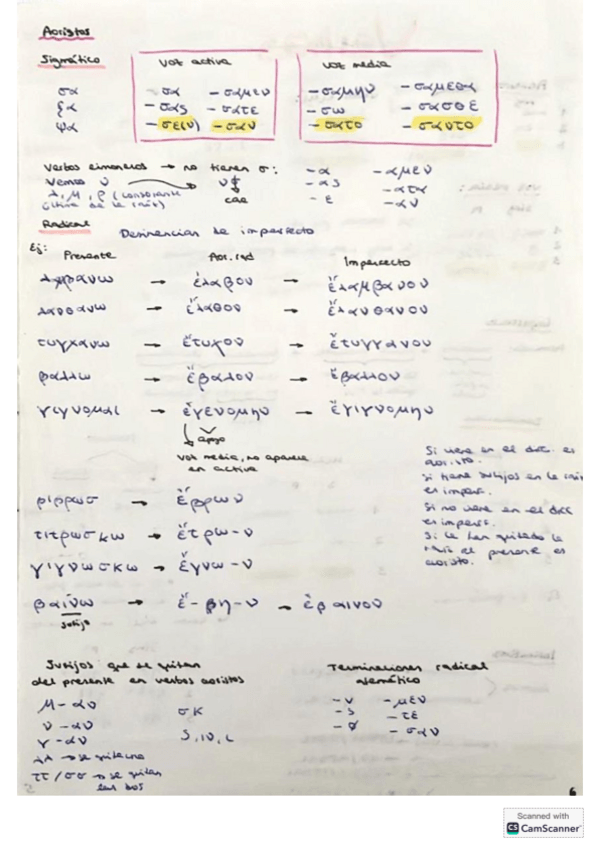 Aoristos
Sigmático
voz activa
voz media
σα
ξα
ψα
- σα - σαμεν
- σας - σατε
- σε(ν) - σαν
- σαμην - σαμεθα
- σω - σασθε
- σατο - σαντο
no tienen σ:
cae
- α - αμεν
- ας - ατα
- ε - αν
Radical Desinencias de imperfecto
Ej:
Presente Aor. rad Imperfecto
→ ἐλαβον → ἐλαμβανον
λανθανω → ἔλαθον → ἔλανθανον
τυγχανω → ἔτυχον → ἔτυγγανον
βαλλω → ἔβαλον → ἔβαλλον
γιγνομαι → ἔγενομην → ἔγιγνομην
apoyo
voz media, no aparece
en activa
Si viene en el dicc. es
aoristo.
Si tiene sufijos en la
es imperf.
Si no viene en el dicc
es imperf.
Si le han quitado la
el presente es
aoristo.
τιτρωσκω → ἔτρω-ν
γιγνωσκω → ἔγνω-ν
βαινω → ἔ-βη-ν → ἐβαινον
sufijo
Sufijos que se quitan
del presente en verbos aoristos
μ-αν
ν-αν
γ-αν
λλ → se quita uno
ττ/σσ → se quitan
las dos
σκ
Terminaciones radical
atemático
- ν - μεν
- ς - τε
- Ø - σαν
6
Scanned with
CS CamScanner